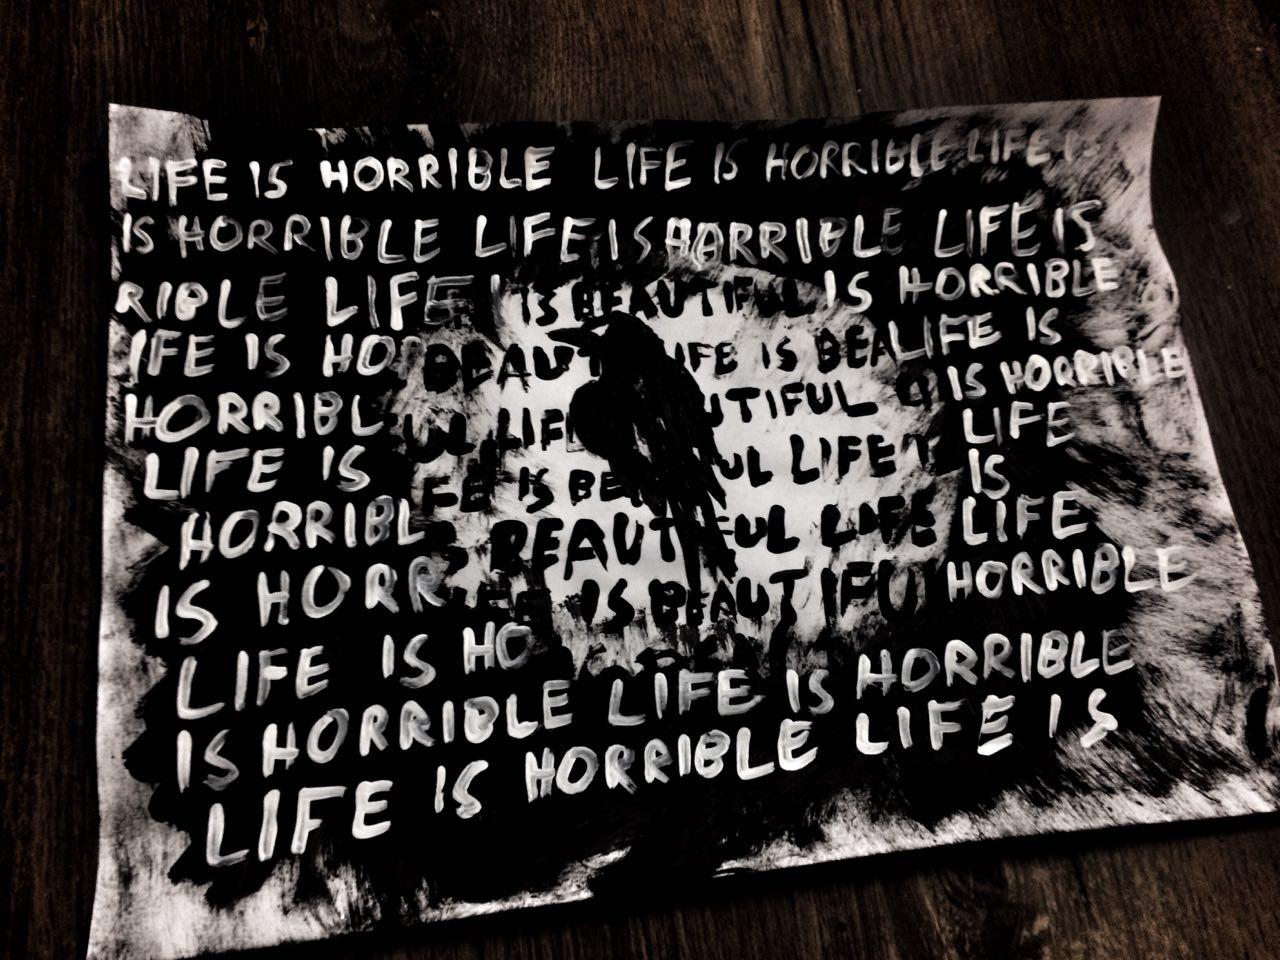 LIFE IS HORRIBLE LIFE IS HORRIBLE LIFE IS
IS HORRIBLE LIFE IS HORRIBLE LIFE IS
RIBLE LIFE IS BEAUTIFUL IS HORRIBLE
IFE IS HO BEAUT IFE IS BEA LIFE IS
HORRIBL UL LIF UTIFUL IS HORRIBLE
LIFE IS FE IS BE UL LIFE LIFE
IS
HORRIBL BEAUT FUL LIFE LIFE
IS HORR IS BEAUTIFU HORRIBLE
LIFE IS HO
IS HORRIBLE LIFE IS HORRIBLE
LIFE IS HORRIBLE LIFE IS